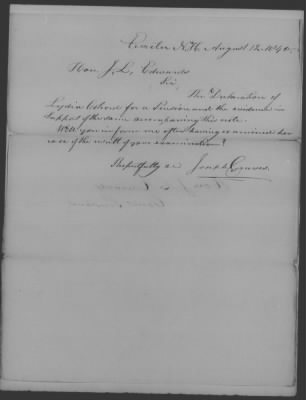 Exeter N.H. August 12. 1840.
Hon. J. L. Edwards
Sir,
The Declaration of
Lydia Osborn for a Pension and the evidence in
support of the same accompanies this note.
Will you inform me after having examined her
case of the result of your examination?
Respectfully